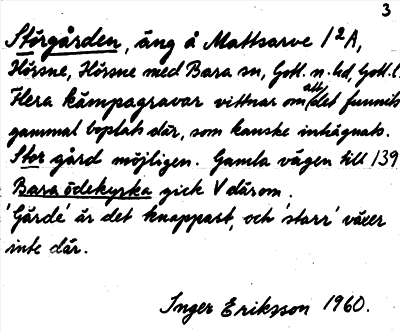 3
Störgården, äng å Mattsarve 1²A,
Hörsne, Hörsne med Bara sn, Gotl. n. hd, Gotl. l.
Flera kämpagravar vittnar om att det funnits
gammal boplats där, som kanske inhägnats.
Stor gård möjligen. Gamla vägen till 139
Bara ödekyrka gick V därom.
'Gärde' är det knappast, och 'starr' växer
inte där.
Inger Eriksson 1960.